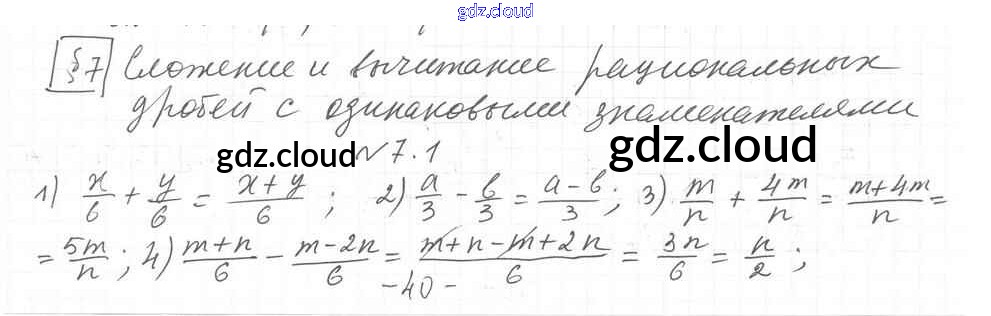 gdz.cloud
§7 Сложение и вычитание рациональных
дробей с одинаковыми знаменателями
gdz.cloud №7.1 gdz.cloud
1) x/6 + y/6 = x+y/6 ; 2) a/3 - b/3 = a-b/3 ; 3) m/n + 4m/n = m+4m/n =
= 5m/n ; 4) m+n/6 - m-2n/6 = m+n-m+2n/6 = 3n/6 = n/2 ;
-40-